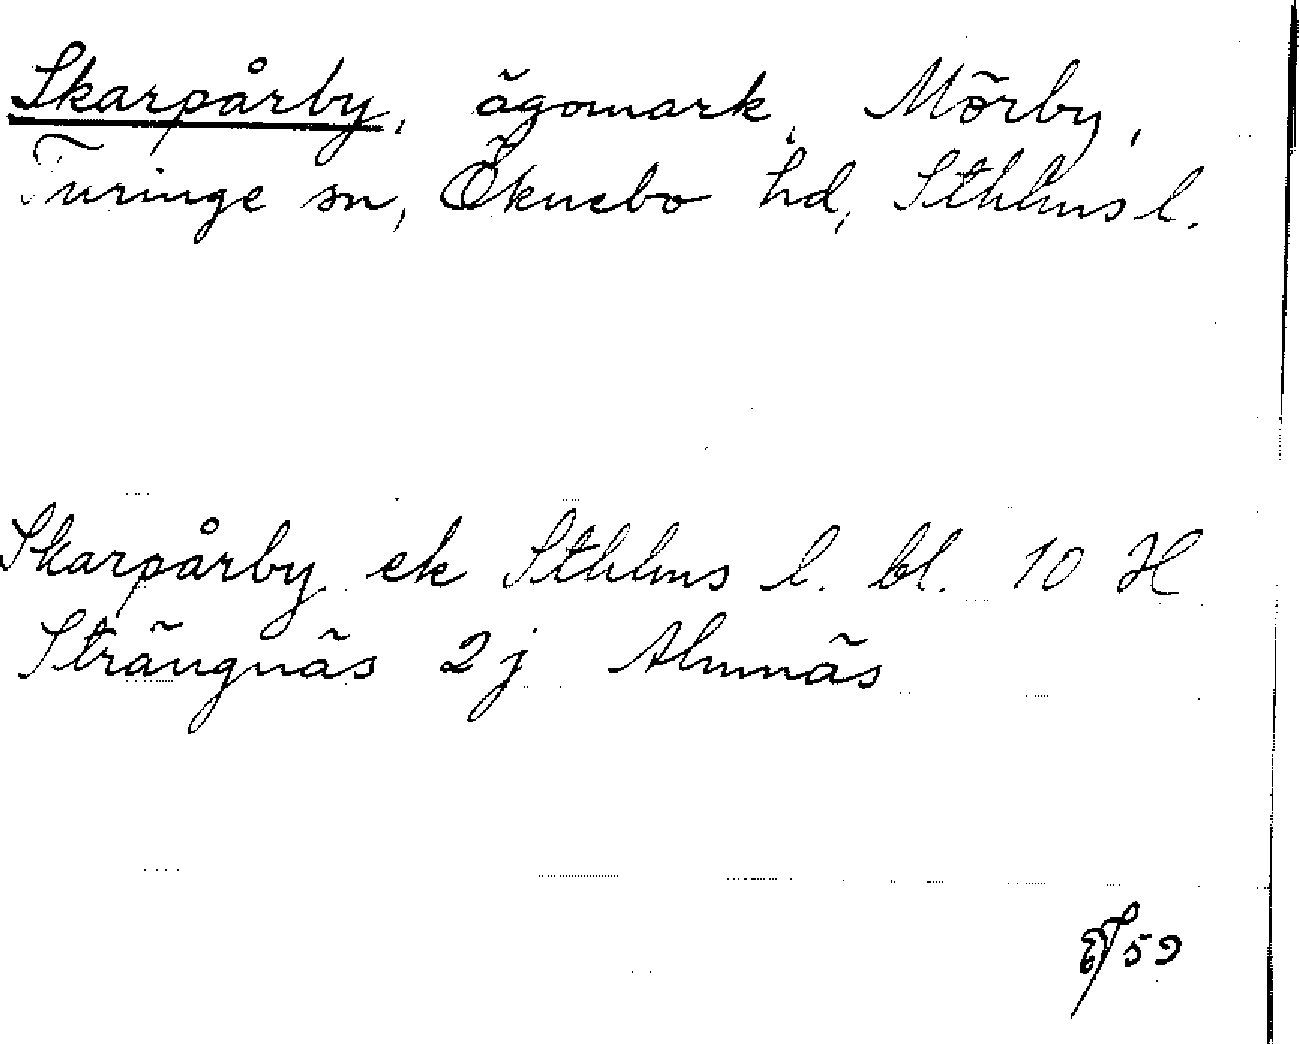 Skarpårby, ägomark, Mörby,
Turinge sn, Öknebo hd, Sthlms l.
Skarpårby ek Sthlms l. bl. 10 H
Strängnäs 2j Almnäs
59